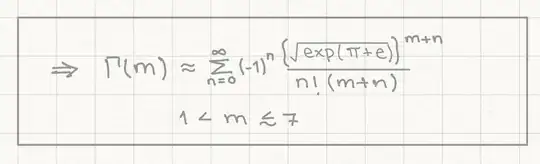 ⇒ Γ(m) ≈ ∑_{n=0}^{∞} (-1)^n {√exp(π+e)}^{m+n} / n! (m+n)
1 < m ≲ 7